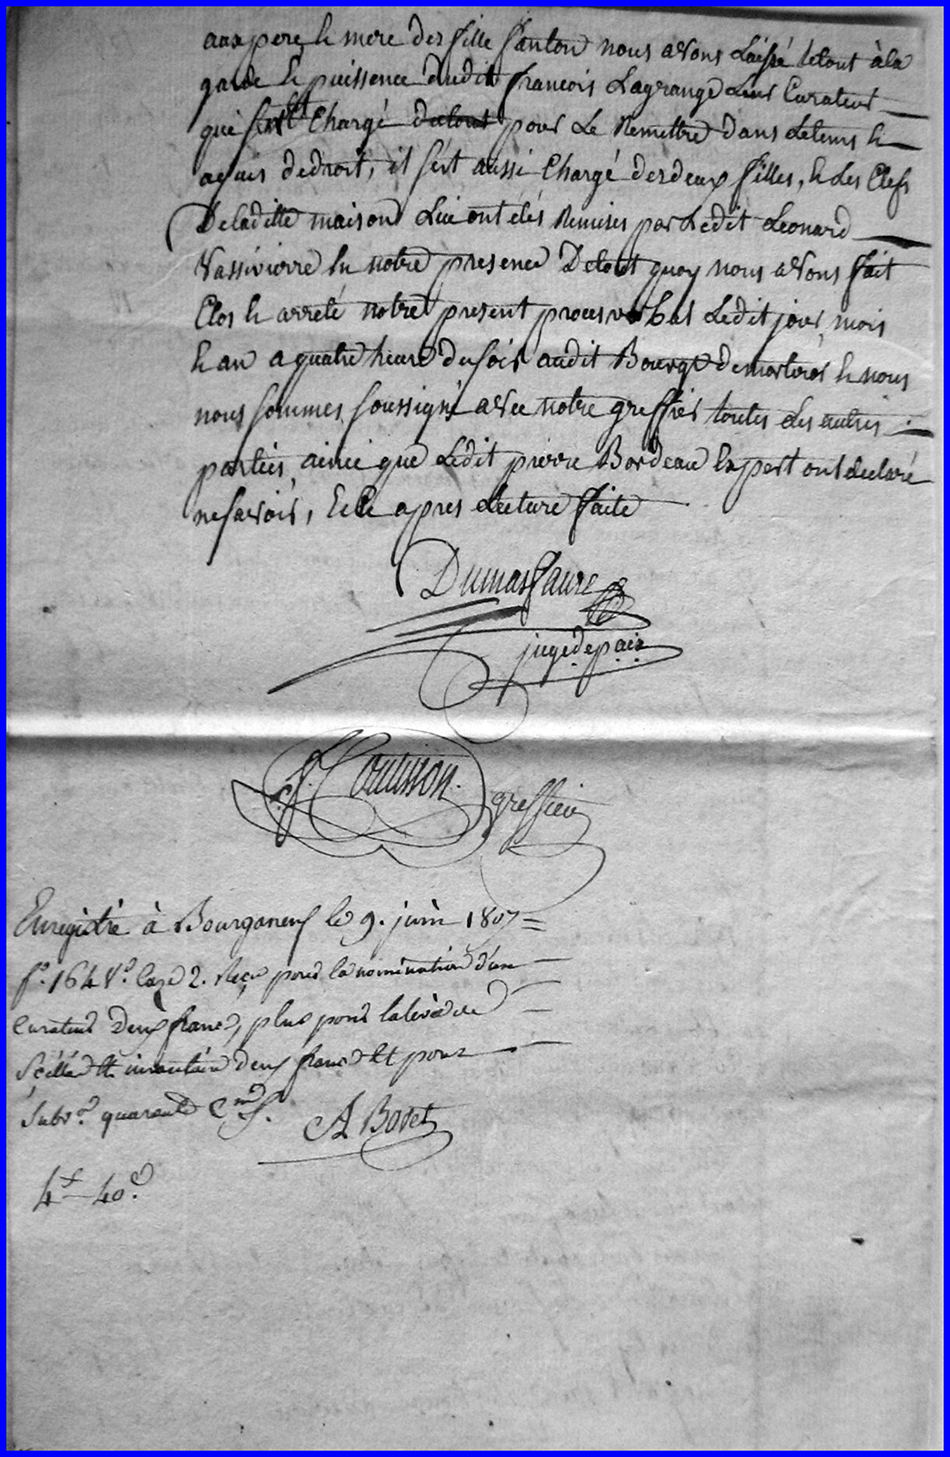 aux pere & mere des fille fanton nous avons laissé letout àla
garde & puissence dudit francois Lagrange leur Curateur
qui sest Chargé dutout pour Le Remettre dans letems &
aquis dedroit, il sest aussi Chargé desdeux filles, & les Clefs
Deladitte maison Lui ont étés Remises par Ledit Leonard
Vassivierre En notre presence Detout quoy nous avons fait
Clos & arreté notre present procès verbal Ledit jour, mois
& an a quatre heure dusoir audit Bourg Demorterol & nous
nous sommes soussigné avec notre greffier toutes les autres
parties, ainsi que Ledit pierre Bordeau Expert ont declaré
nesavoir, Ecte apres Lecture faite
Dumasfaure
juge de paix
Coutisson
greffier
Enregistré à Bourganeuf le 9. juin 1807
fo. 164 Vo. Case 2. Reçu pour la nomination d'un
curateur deux francs, plus pour la levée de
scéllés et inventaire deux francs Et pour
subv.on quarante Cmes.
A Bovet
4f 40c